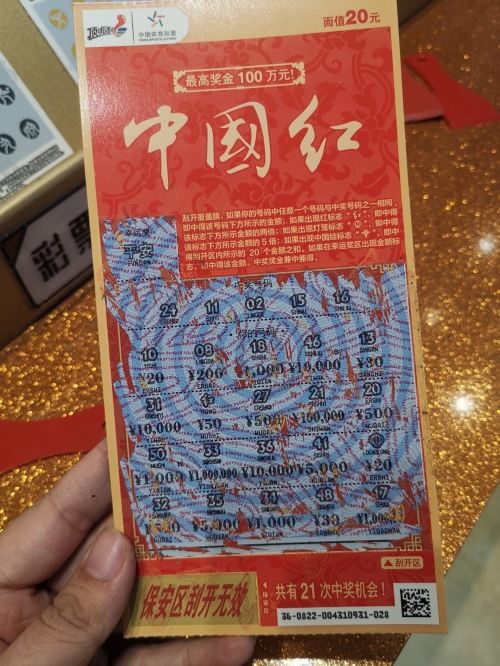 顶呱刮
中国体育彩票
CHINA SPORTS LOTTERY
面值20元
最高奖金 100 万元!
中國红
刮开覆盖膜,如果你的号码中任意一个号码与中奖号码之一相同,
即中得该号码下方所示的金额;如果出现红标志“红”,即中得
该标志下方所示金额的两倍;如果出现灯笼标志
该标志下方所示金额的 5 倍;如果出现中国结标志
得刮开区内所示的 20 个金额之和。如果在幸运奖区出现金额标
志,即中得该金额。中奖奖金兼中兼得。
幸运奖
平安
PINGAN
中奖号码
24 11 02 15 16
你的号码
10 08 18 46 13
¥20 ¥200 ¥1,000 ¥10,000 ¥30
31 红 27 21 20
¥10,000 ¥50 ¥50 ¥100,000 ¥500
50 33 36 41 DENGLONG
¥1,000 ¥1,000,000 ¥10,000 ¥5,000 ¥20
32 35 44 48 17
¥5,000 ¥1,000 ¥30 ¥1,000
刮开区
保安区刮开无效
保安区
共有 21 次中奖机会!
36-0822-004310931-028
彩票